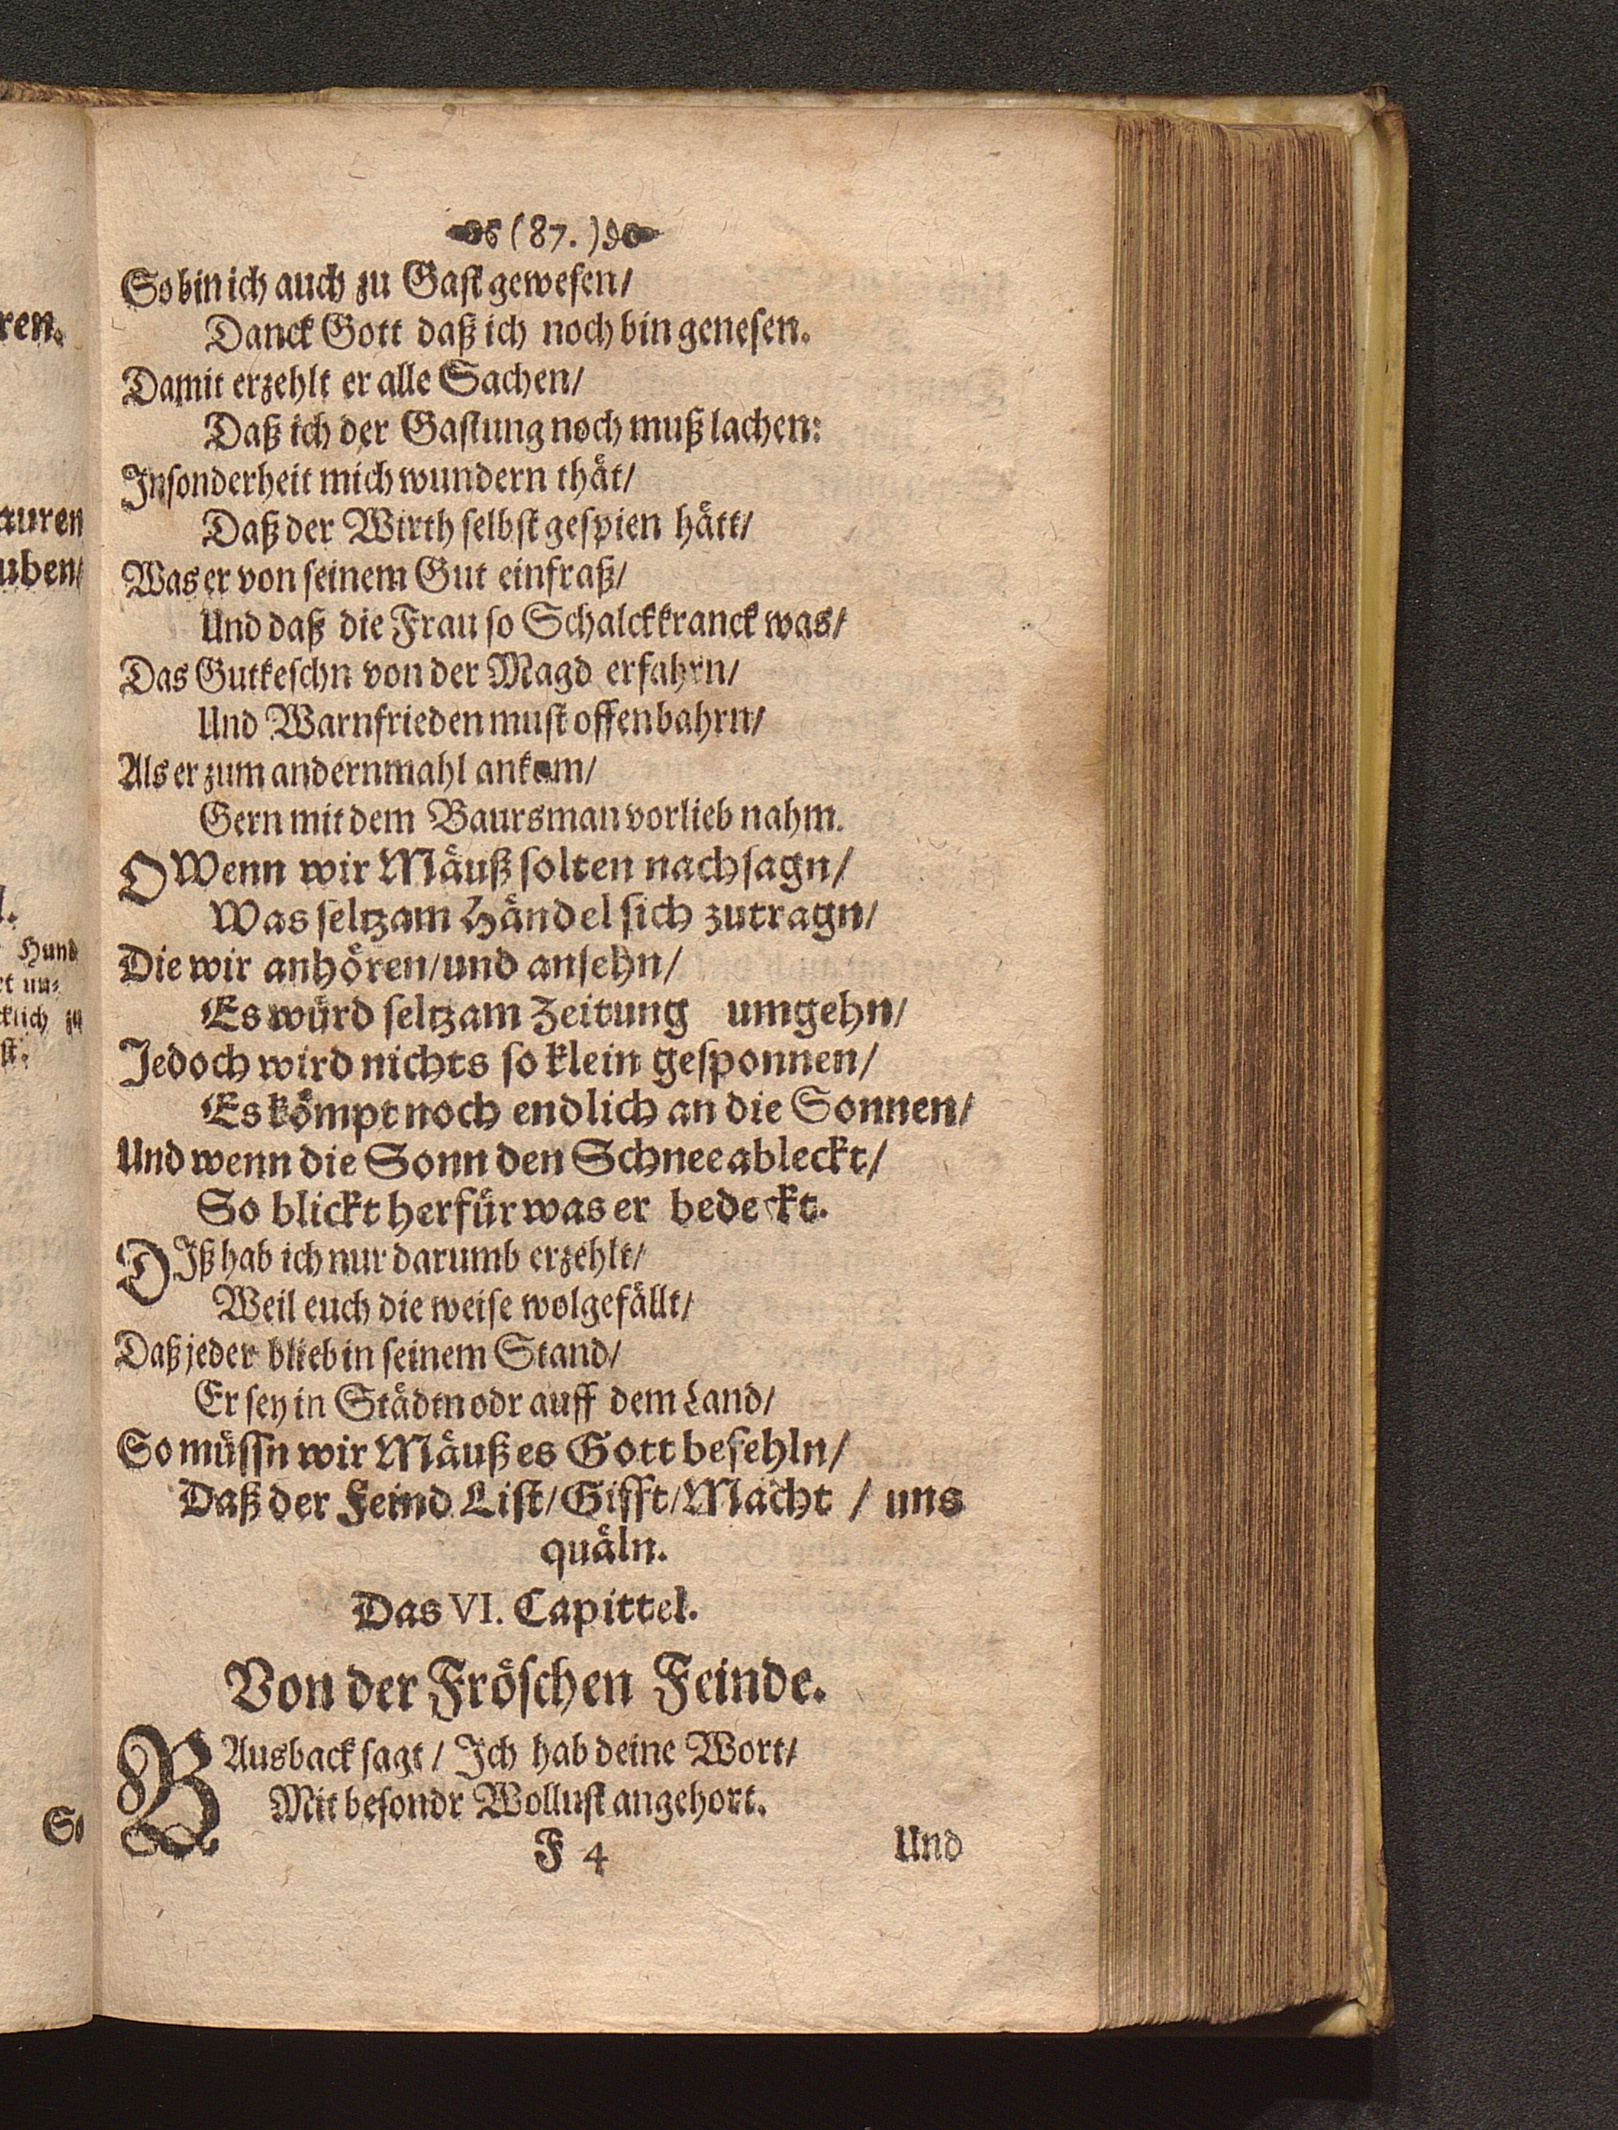 (87.)
So bin ich auch zu Gast gewesen/
Danck Gott daß ich noch bin genesen.
Damit erzehlt er alle Sachen/
Daß ich der Gastung noch muß lachen:
Insonderheit mich wundern thåt/
Daß der Wirth selbst gespien hått/
Was er von seinem Gut einfraß/
Und daß die Frau so Schalckkranck was/
Das Gutkeschn von der Magd erfahrn/
Und Warnfrieden must offenbahrn/
Als er zum andernmahl ankam/
Gern mit dem Baursman vorlieb nahm.
O Wenn wir Måuß solten nachsagn/
Was seltzam Håndel sich zutragn/
Die wir anhören/und ansehn/
Es würd seltzam Zeitung umgehn/
Jedoch wird nichts so klein gesponnen/
Es kömpt noch endlich an die Sonnen/
Und wenn die Sonn den Schnee ableckt/
So blickt herfür was er bedeckt.
DIß hab ich nur darumb erzehlt/
Weil euch die weise wolgefållt/
Daß jeder blieb in seinem Stand/
Er sey in Stådtn odr auff dem Land/
So müssn wir Måuß es Gott befehln/
Daß der Feind List/Gifft/Macht / uns
quåln.
Das VI. Capittel.
Von der Fröschen Feinde.
BAusback sagt / Ich hab deine Wort/
Mit besondr Wollust angehort.
F 4 Und
ren.
auren
uben/
l.
Hund
et un-
cklich zu
st.
So